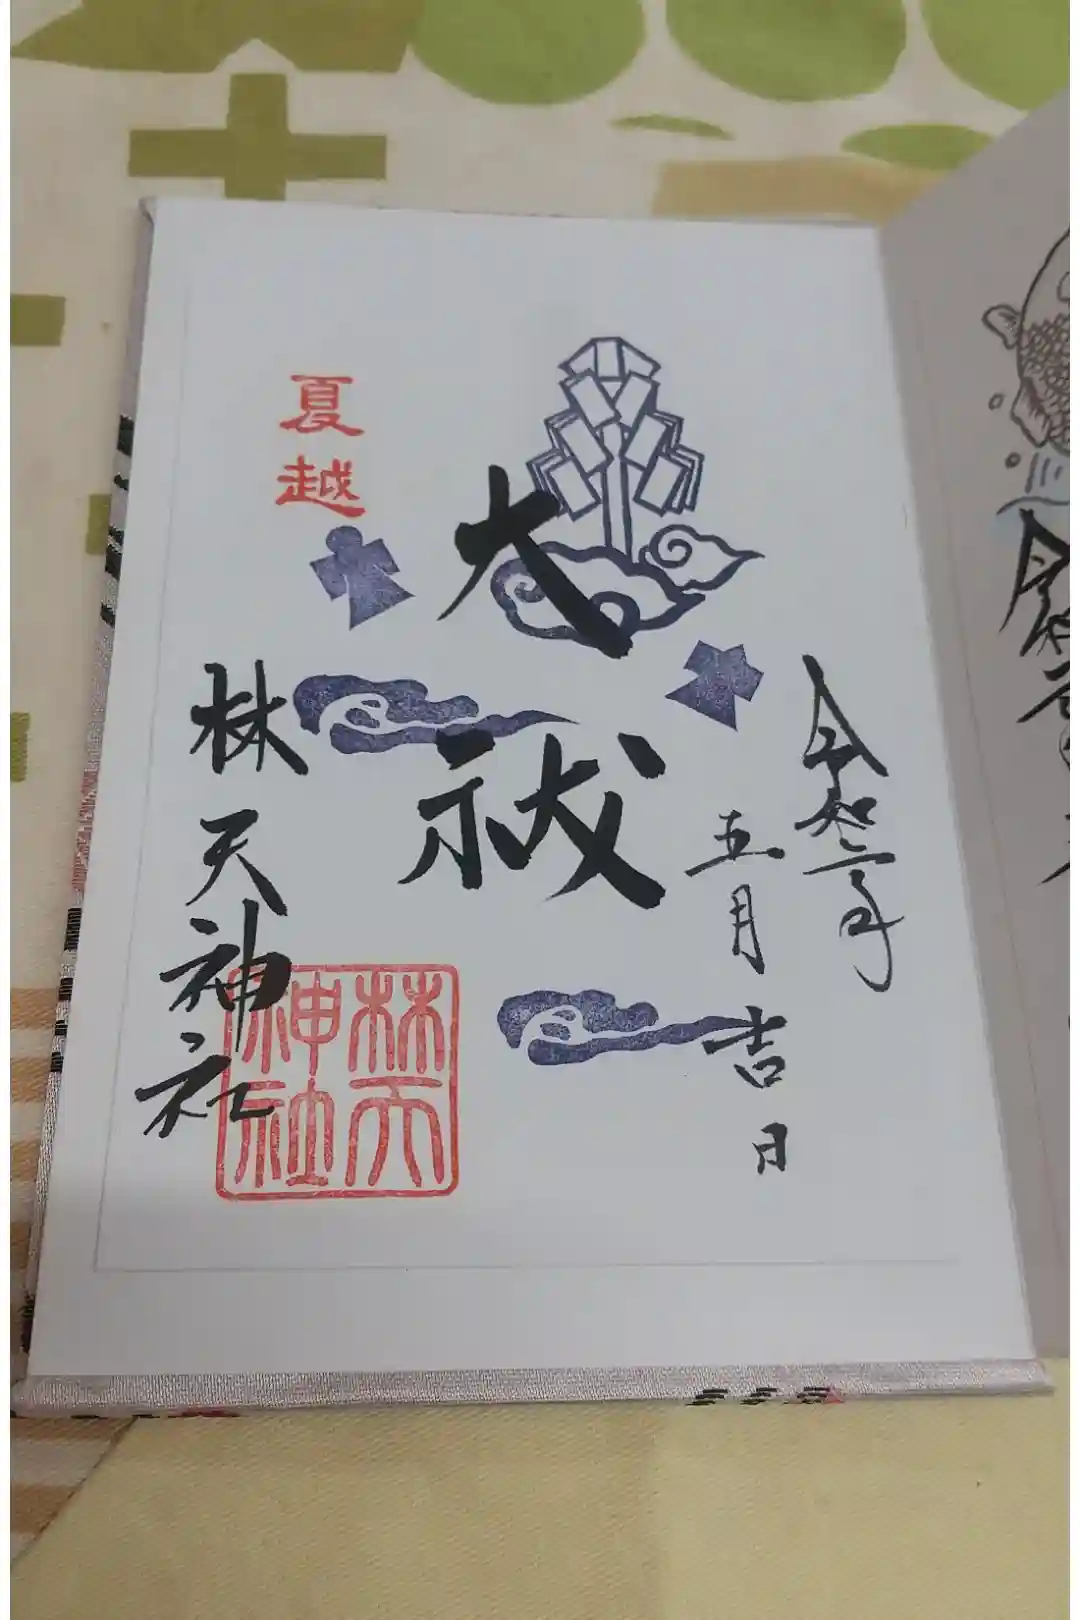 令和二年
五月吉日
大祓
夏越
林天神社
林天神社
令和元